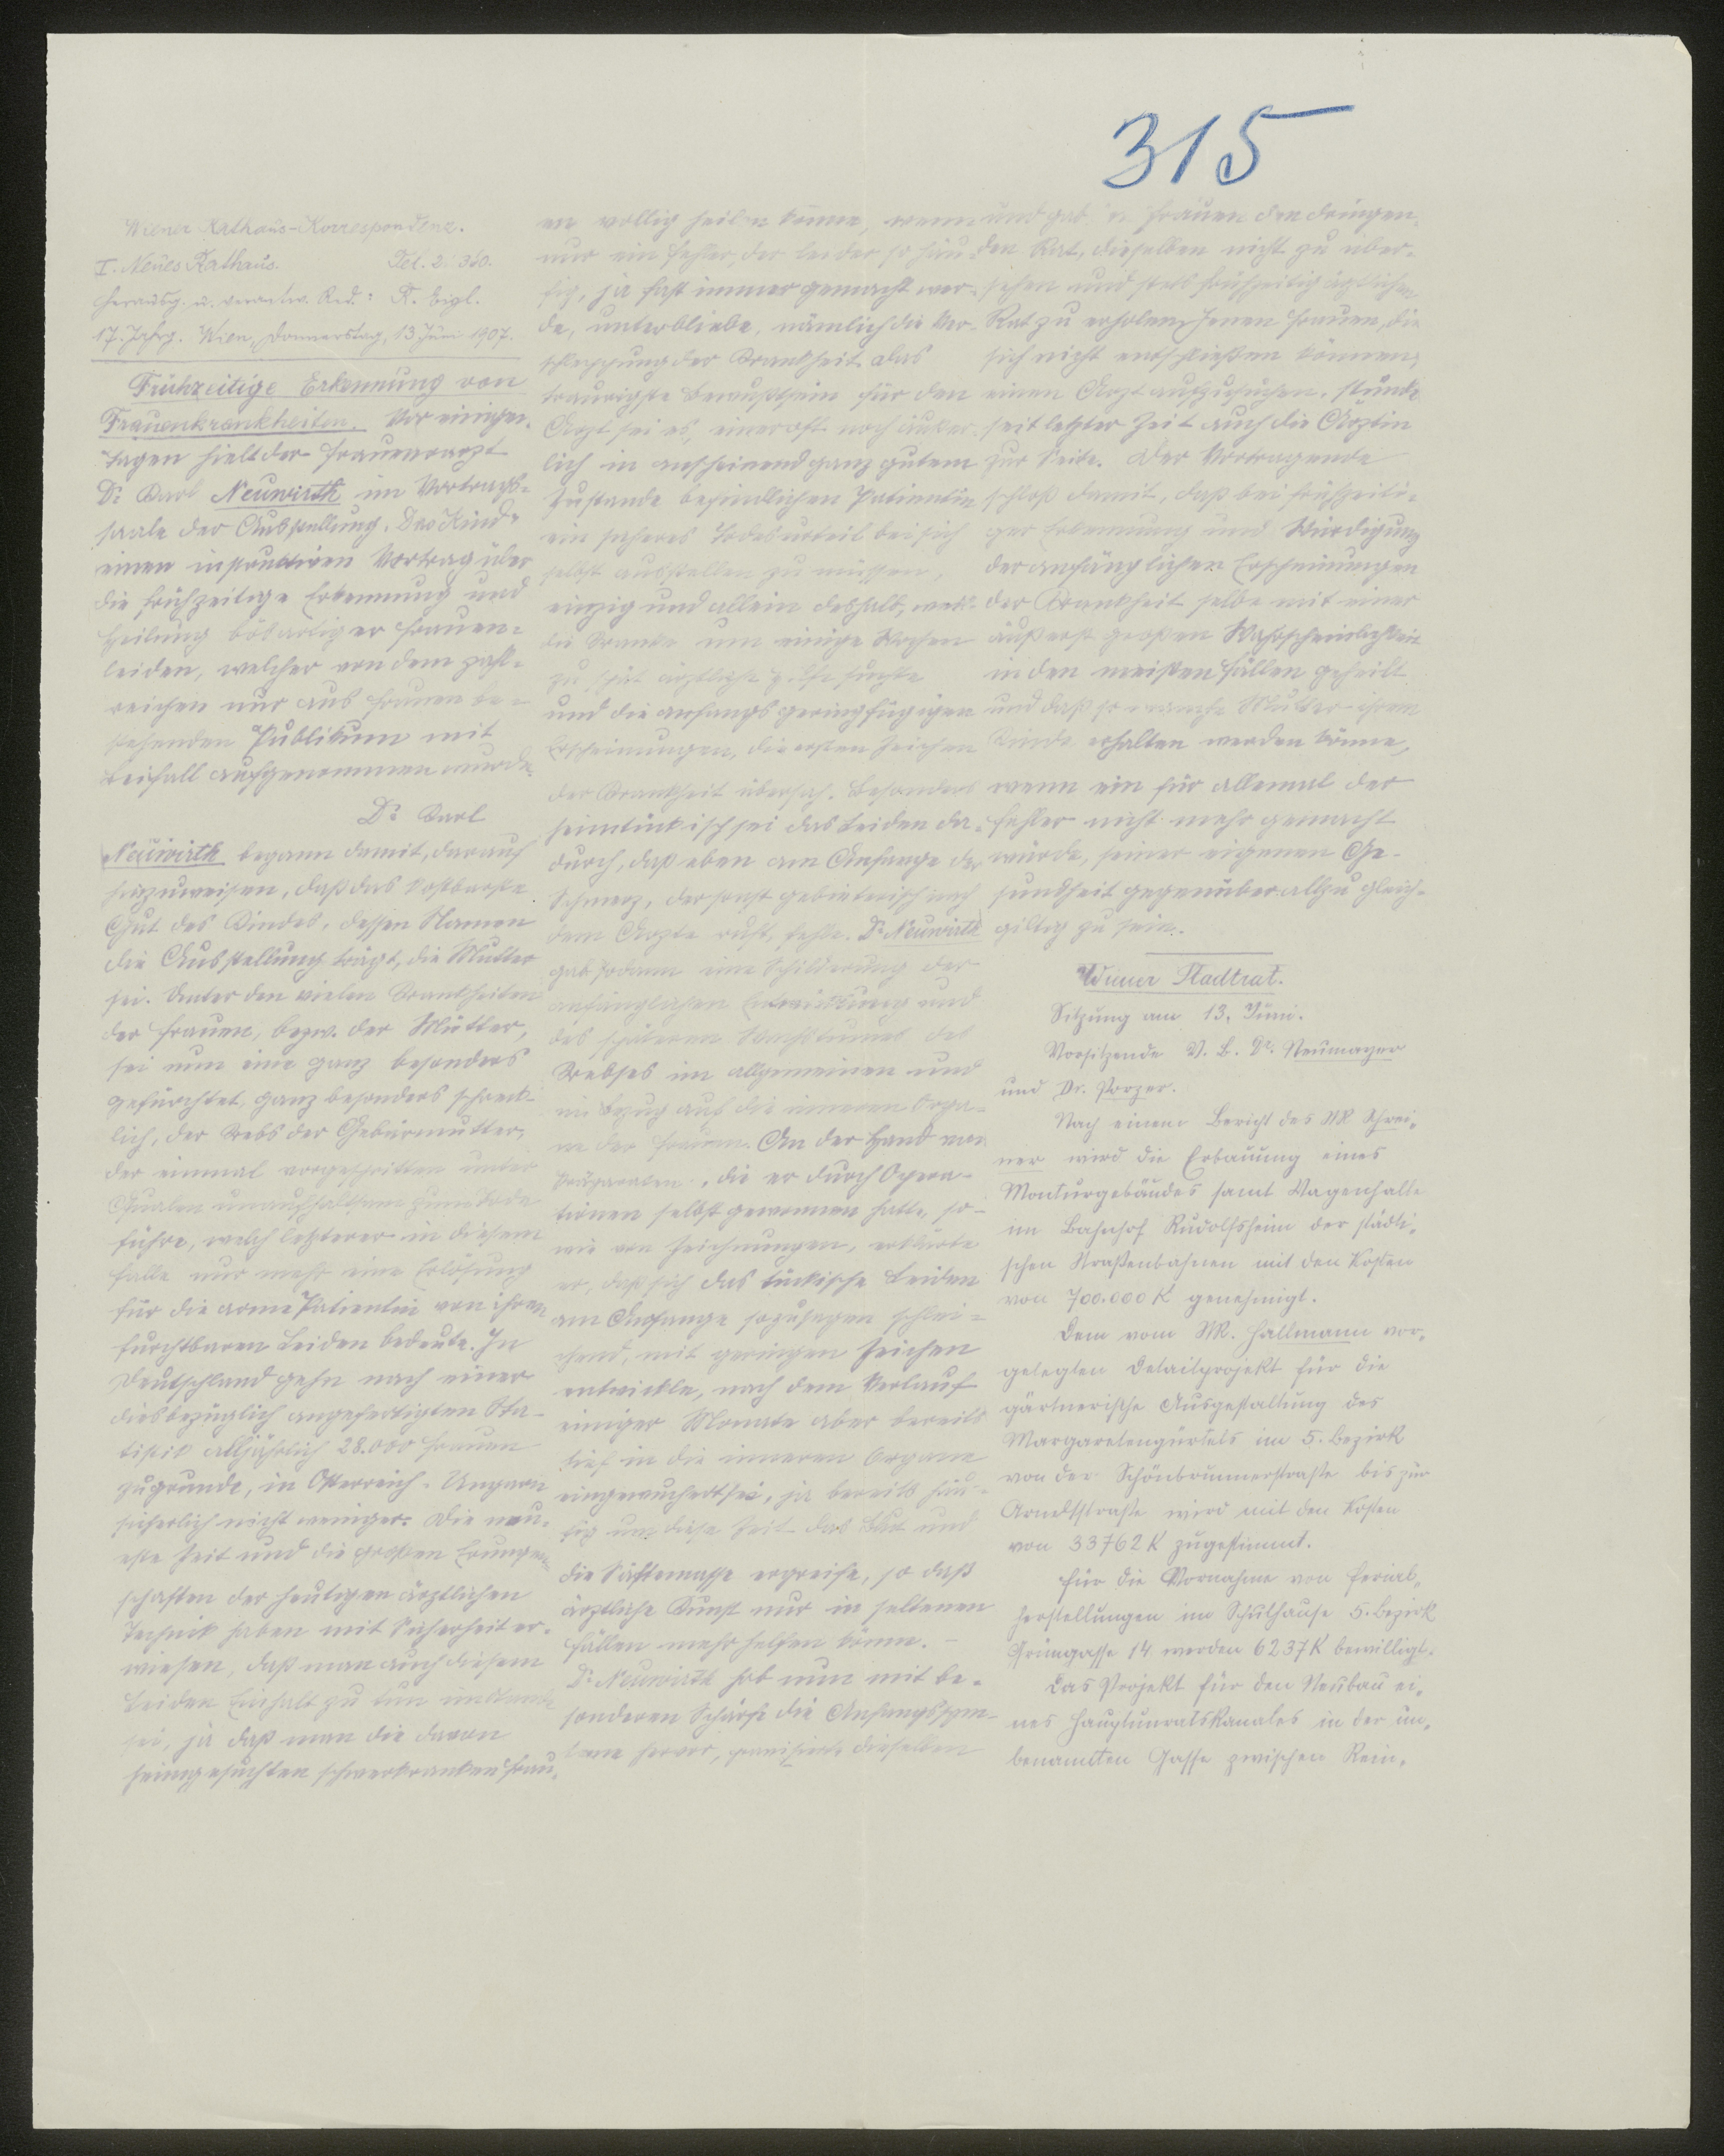 315
Wiener Rathaus-Korrespondenz.
I. Neues Rathaus. Tel. 2 360.
Herausg. u. verantw. Red.: R. Eigl.
17. Jahrg. Wien, Donnerstag, 13 Juni 1907.
Frühzeitige Erkennung von
Frauenkrankheiten. Vor einigen
Tagen hielt der Frauenarzt
Dr Karl Neuwirth im Vortrags-
saale der Ausstellung „Das Kind"
einen instruktiven Vortrag über
die frühzeitige Erkennung und
Heilung bösartiger Frauen-
leiden, welcher von dem zahl-
reichen nur aus Frauen be-
stehenden Publikum mit
Beifall aufgenommen wurde.
Dr Karl
Neuwirth begann damit, darauf
hinzuweisen, daß das kostbarste
Gut des Kindes, dessen Namen
die Ausstellung trägt, die Mutter
sei. Unter den vielen Krankheiten
der Frauen, bezw. der Mütter,
sei nun eine ganz besonders
gefürchtet, ganz besonders schreck-
lich, der Krebs der Gebärmutter,
der einmal vorgeschritten unter
Qualen unaufhaltsam zum Tode
führe, welch letzterer in diesem
Falle nur mehr eine Erlösung
für die arme Patientin von ihren
furchtbaren Leiden bedeute. In
Deutschland gehn nach einer
diesbezüglich angefertigten Sta-
tistik alljährlich 28.000 Frauen
zugrunde, in Österreich-Ungarn
sicherlich nicht weniger. Die neu-
este Zeit und die großen Errungen-
schaften der heutigen ärztlichen
Technik haben mit Sicherheit er-
wiesen, daß man auch diesem
Leiden Einhalt zu tun imstande
sei, ja daß man die davon
heimgesuchten schwerkranken Frau-
en völlig heilen könne, wenn
nur ein Fehler, der leider so häu-
fig, ja fast immer gemacht wer-
de, unterbliebe, nämlich die Ver-
schleppung der Krankheit. Das
traurigste Bewußtsein für den
Arzt sei es, einer oft noch äußer-
lich in anscheinend ganz gutem
Zustande befindlichen Patientin
ein sicheres Todesurteil bei sich
selbst ausstellen zu müssen,
einzig und allein deshalb, weil
die Kranke um einige Wochen
zu spät ärztliche Hilfe suchte
und die anfangs geringfügigen
Erscheinungen, die ersten Zeichen
der Krankheit übersah. Besonders
heimtückisch sei das Leiden da-
durch, daß eben am Anfange der
Schmerz, der sonst gebieterisch nach
dem Arzte ruft, fehle. Dr Neuwirth
gab sodann eine Schilderung der
anfänglichen Entwicklung und
des späteren Wachstumes des
Krebses im allgemeinen und
in Bezug auf die inneren Orga-
ne der Frauen. An der Hand von
Präparaten, die er durch Opera-
tionen selbst gewonnen hatte, so-
wie von Zeichnungen, erklärte
er, daß sich das tückische Leiden
am Anfange sozusagen schlei-
chend, mit geringen Zeichen
entwickle, nach dem Verlauf
einiger Monate aber bereits
tief in die inneren Organe
eingewuchert sei, ja bereits häu-
fig um diese Zeit das Blut und
die Säftemasse ergreife, so daß
ärztliche Kunst nur in seltenen
Fällen mehr helfen könne. -
Dr Neuwirth hob nun mit be-
sonderer Schärfe die Anfangssym-
tome hervor, präzisierte dieselben
und gab den Frauen den dringen-
den Rat, dieselben nicht zu über-
sehen und stets frühzeitig ärztlichen
Rat zu erholen. Jenen Frauen, die
sich nicht entschließen können,
einen Arzt aufzusuchen, stünde
seit letzter Zeit auch die Ärztin
zur Seite. Der Vortragende
schloß damit, daß bei frühzeiti-
ger Erkennung und Würdigung
der anfänglichen Erscheinungen
der Krankheit selbe mit einer
äußerst großen Wahrscheinlichkeit
in den meisten Fällen geheilt
und daß so manche Mutter ihrem
Kinde erhalten werden könne,
wenn ein für allemal der
Fehler nicht mehr gemacht
würde, seiner eigenen Ge-
sundheit gegenüber allzu gleich-
giltig zu sein.
Wiener Stadtrat.
Sitzung am 13. Juni.
Vorsitzende V. B. Dr. Neumayer
und Dr. Porzer.
Nach einem Bericht des StR Schrei-
ner wird die Erbauung eines
Monturgebäudes samt Wagenhalle
im Bahnhof Rudolfsheim der städti-
schen Straßenbahnen mit den Kosten
von 700.000 K genehmigt.
Dem vom StR. Hallmann vor-
gelegten Detailprojekt für die
gärtnerische Ausgestaltung des
Margaretengürtels im 5. Bezirk
von der Schönbrunnerstraße bis zur
Arneltstraße wird mit den Kosten
von 33762 K zugestimmt.
Für die Vornahme von Ferial-
herstellungen im Schulhause 5. Bezirk
Grüngasse 14 werden 6237 K bewilligt.
Das Projekt für den Neubau ei-
nes Hauptunratskanales in der un-
benannten Gasse zwischen Rein-